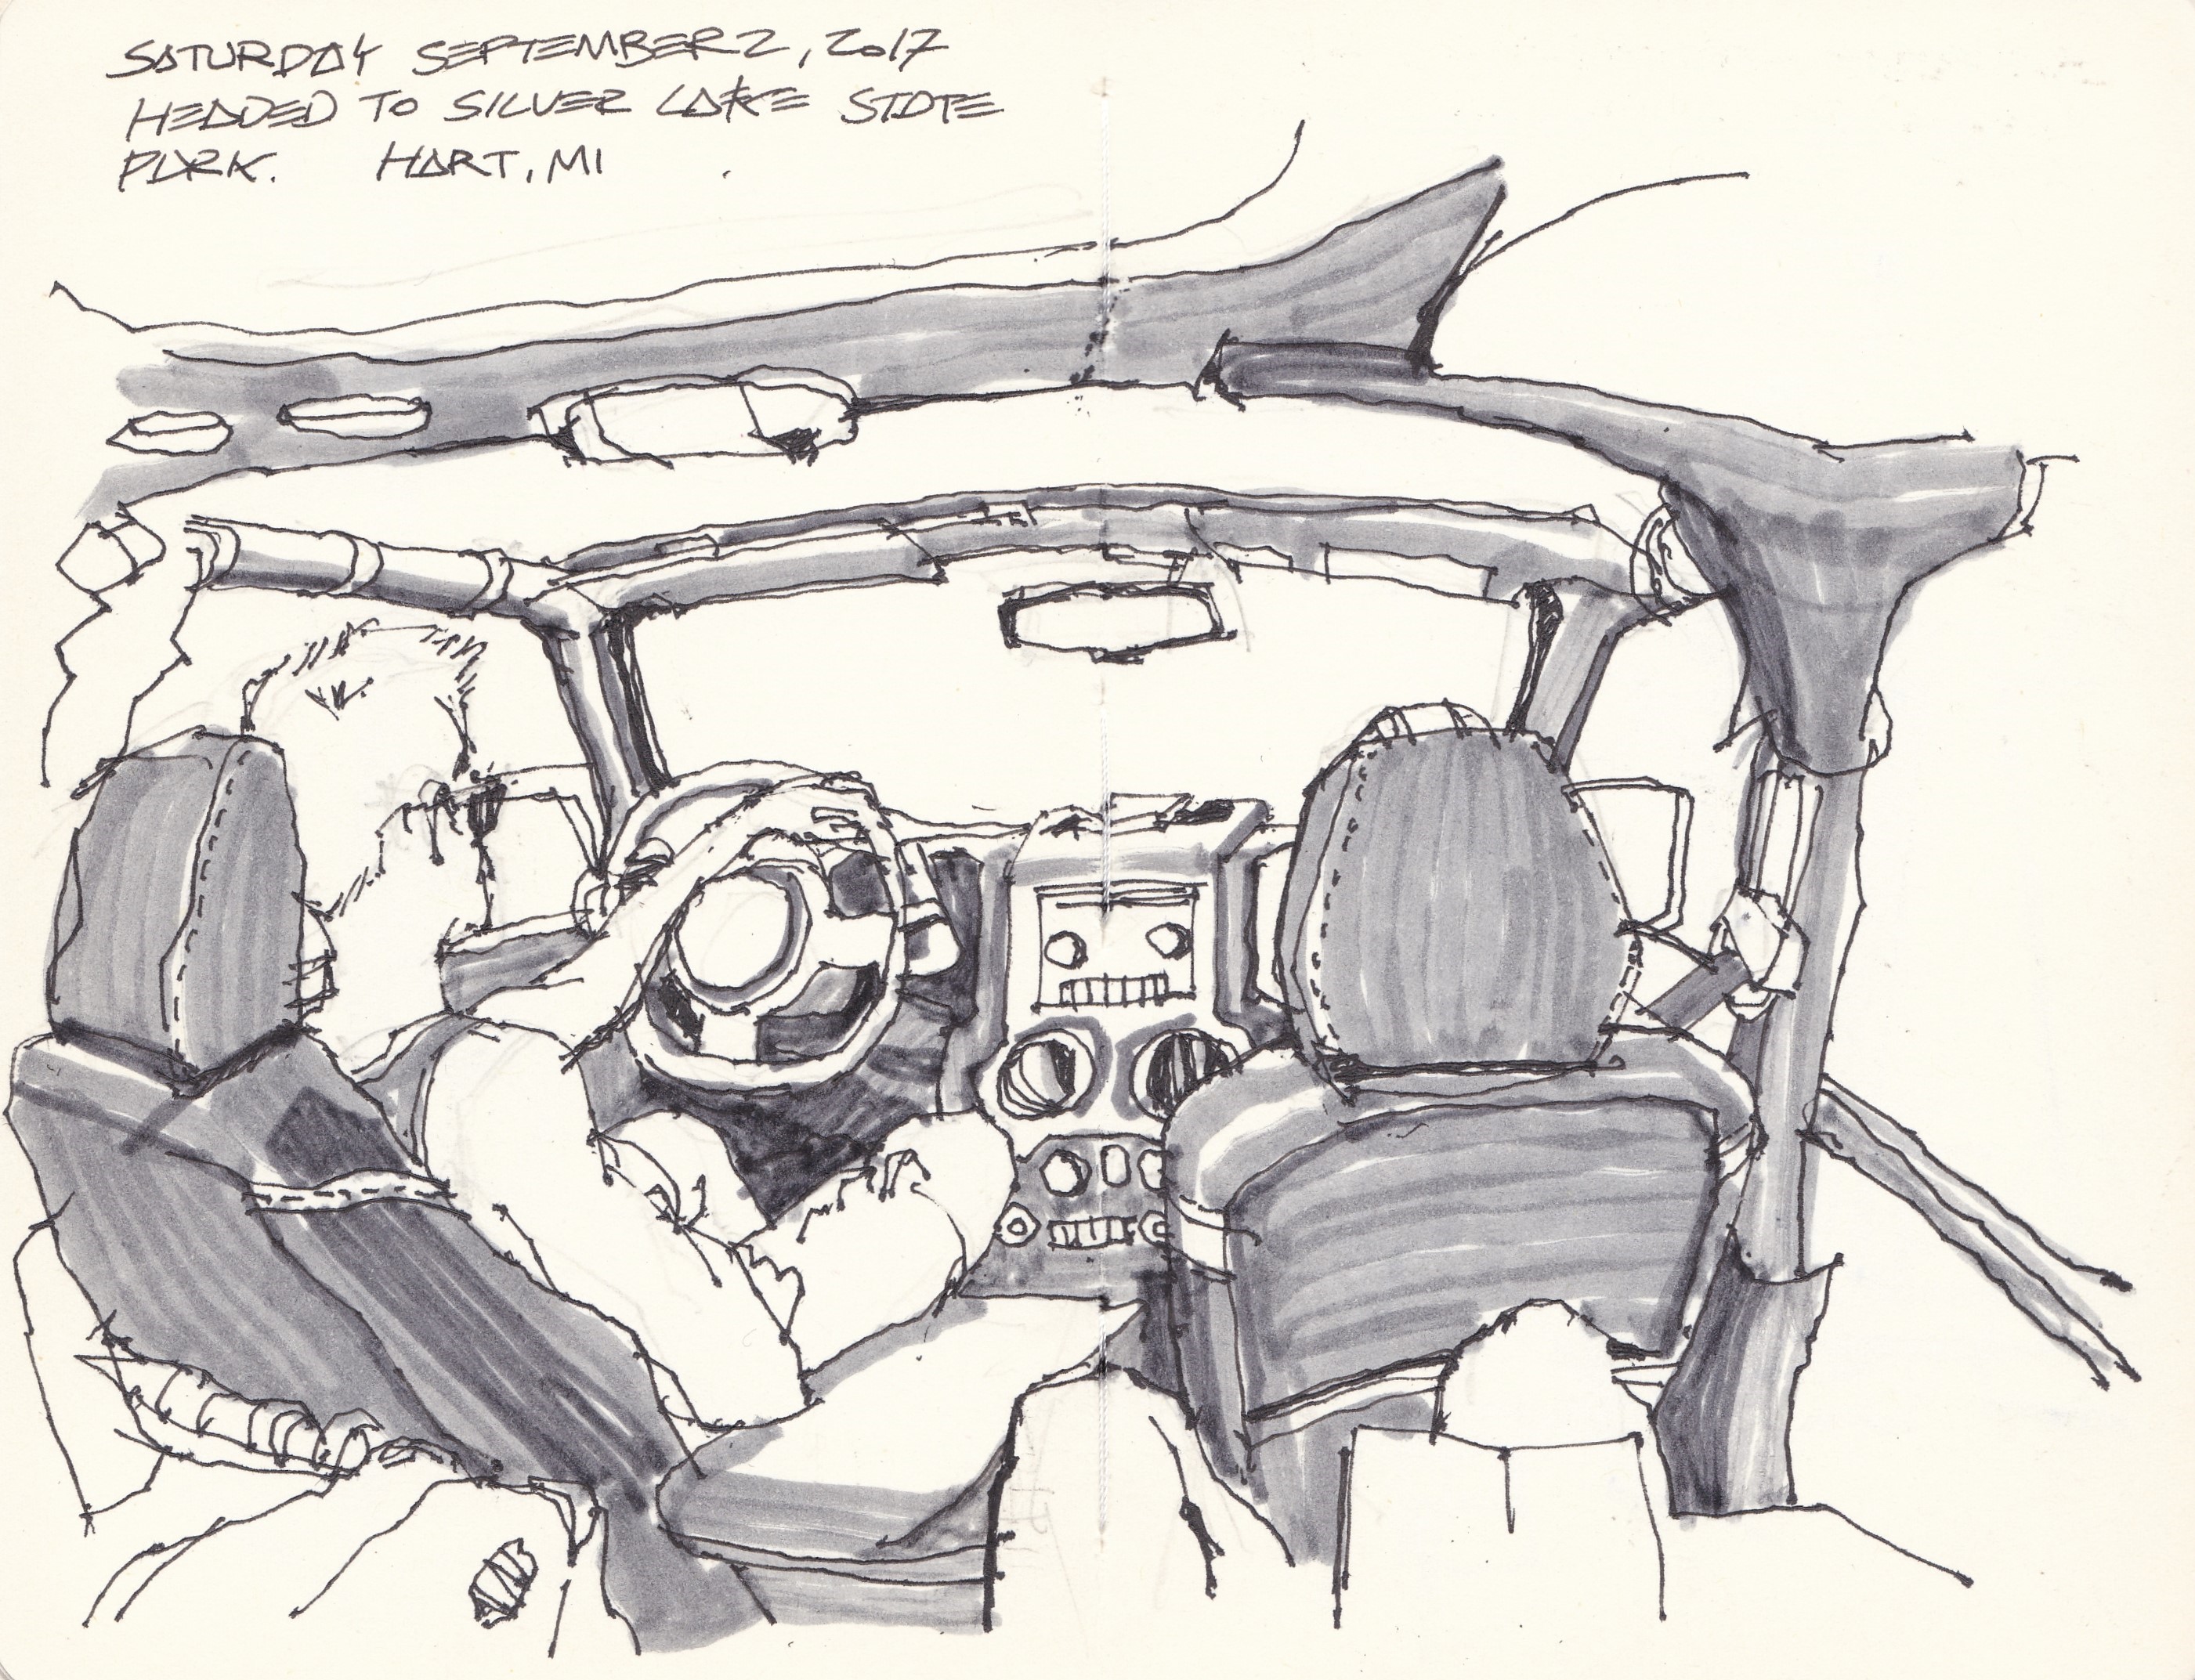 SATURDAY SEPTEMBER 2, 2017
HEADED TO SILVER LAKE STATE
PARK. HART, MI